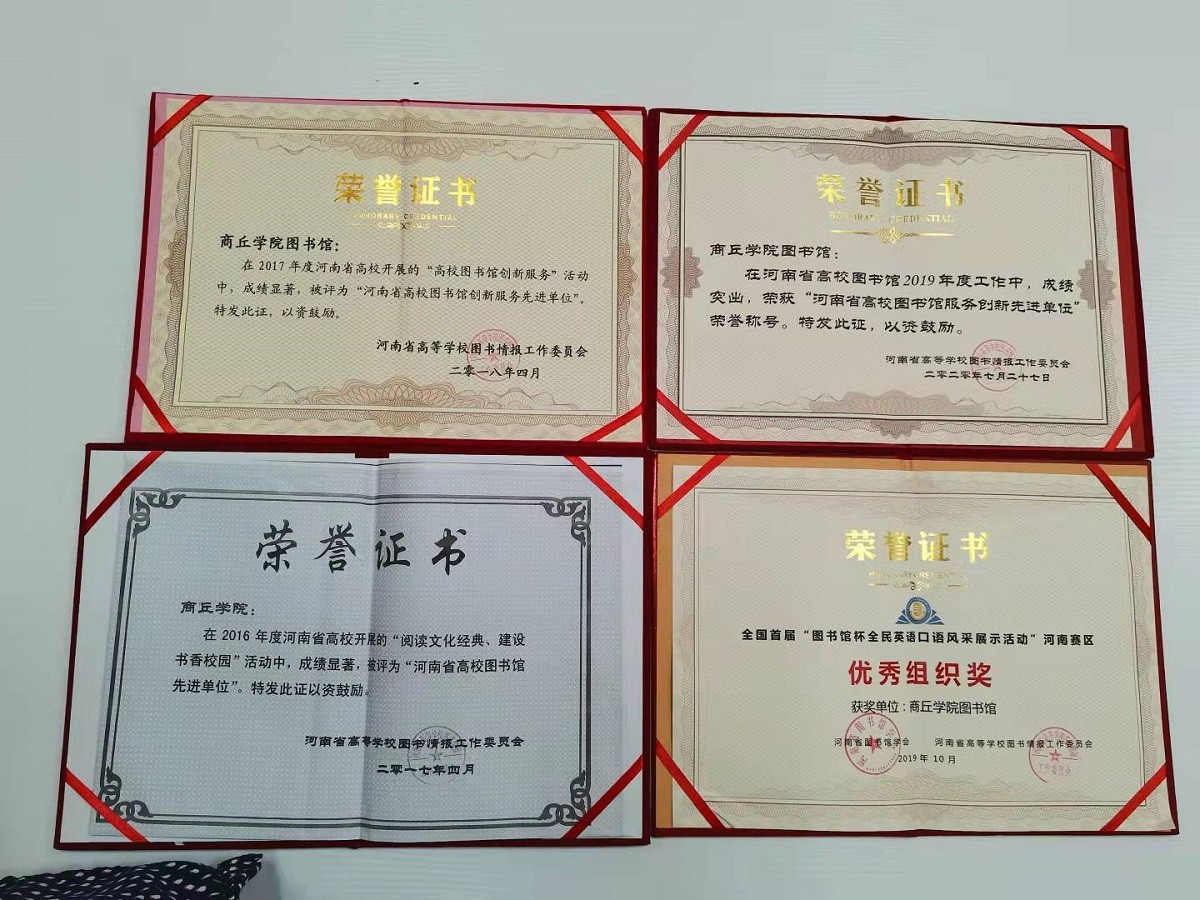 荣誉证书
HONORARY CREDENTIAL
商丘学院图书馆：
在2017年度河南省高校开展的“高校图书馆创新服务”活动
中，成绩显著，被评为“河南省高校图书馆创新服务先进单位”。
特发此证，以资鼓励。
河南省高等学校图书情报工作委员会
二零一八年四月
荣誉证书
HONORARY CREDENTIAL
商丘学院图书馆：
在河南省高校图书馆2019年度工作中，成绩
突出，荣获“河南省高校图书馆服务创新先进单位”
荣誉称号。特发此证，以资鼓励。
河南省高等学校图书情报工作委员会
二零二零年七月二十七日
荣誉证书
商丘学院：
在2016年度河南省高校开展的“阅读文化经典、建设
书香校园”活动中，成绩显著，被评为“河南省高校图书馆
先进单位”。特发此证以资鼓励。
河南省高等学校图书情报工作委员会
二零一七年四月
荣誉证书
全国首届“图书馆杯全民英语口语风采展示活动”河南赛区
优秀组织奖
获奖单位：商丘学院图书馆
河南省图书馆学会 河南省高等学校图书情报工作委员会
2019年10月